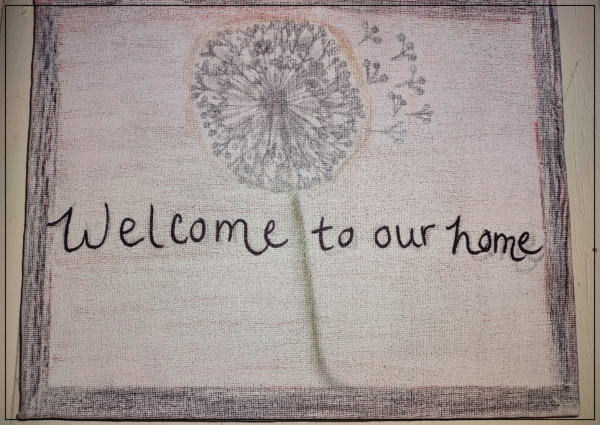 Welcome to our home